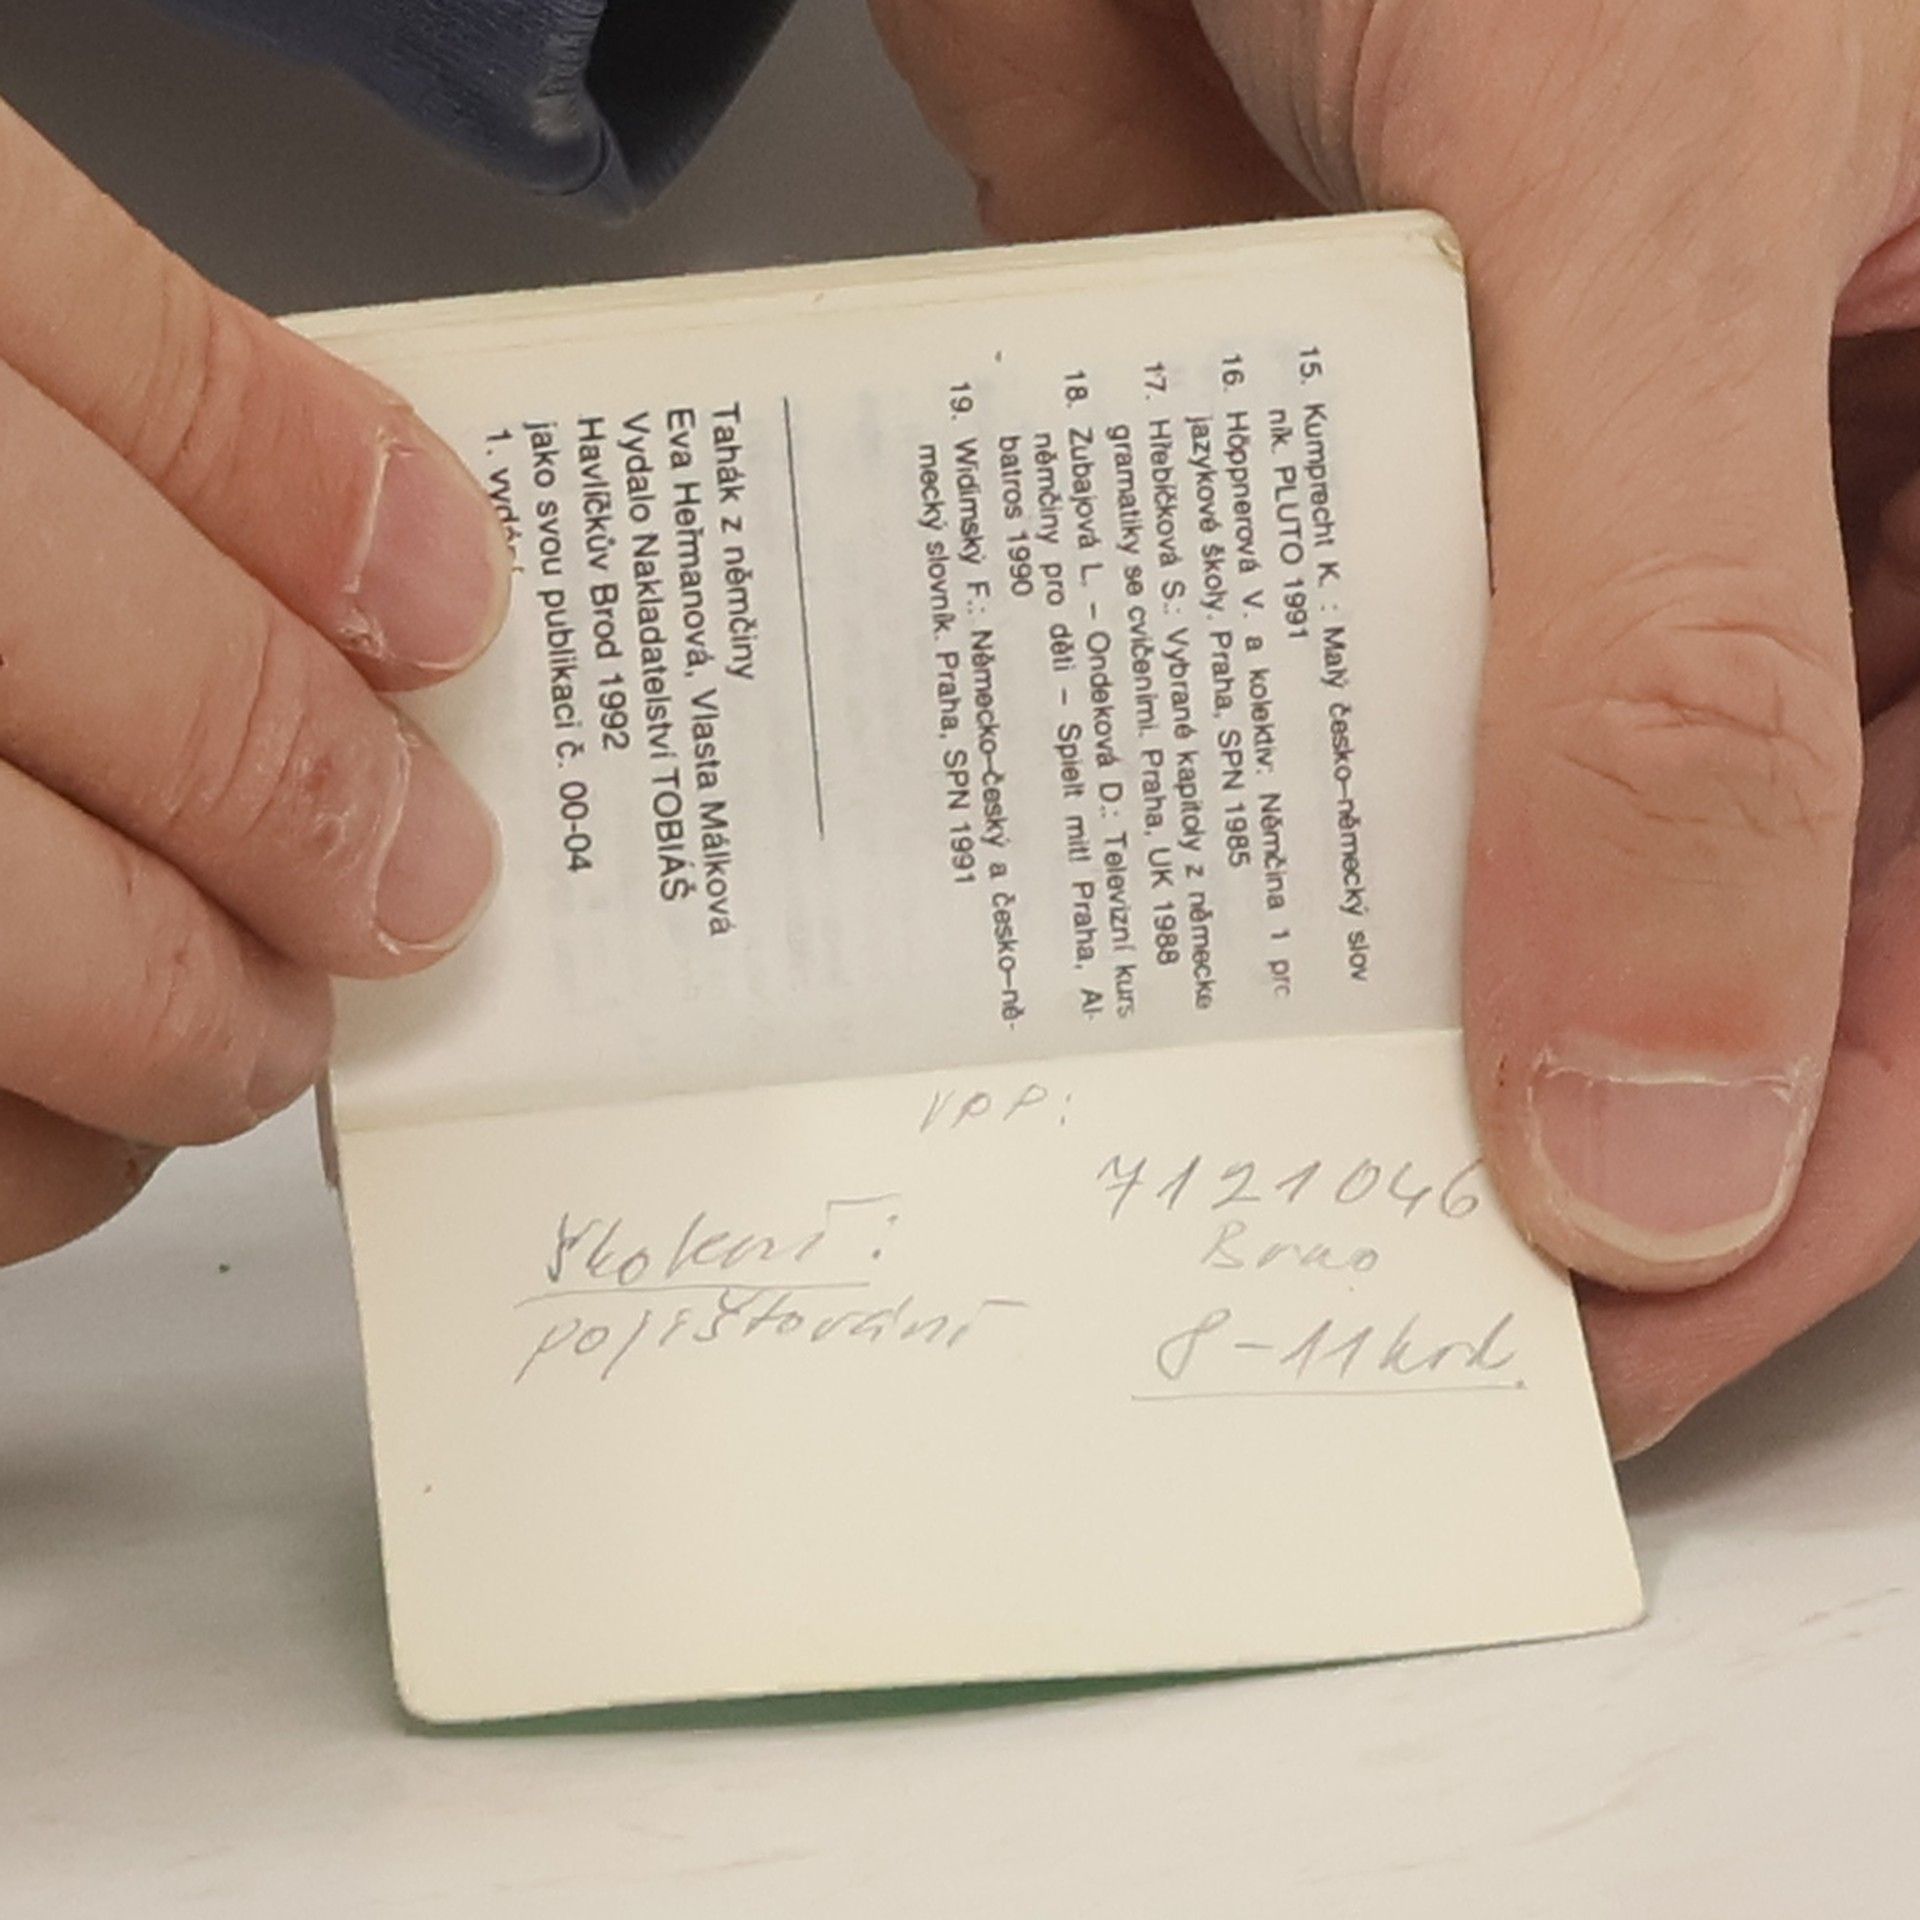 15. Kumprecht K. : Malý česko–německý slov
ník. PLUTO 1991
16. Höppnerová V. a kolektiv: Němčina 1 pro
jazykové školy. Praha, SPN 1985
17. Hřebíčková S.: Vybrané kapitoly z německé
gramatiky se cvičeními. Praha, UK 1988
18. Zubajová L. – Ondeková D.: Televizní kurs
němčiny pro děti – Spielt mit! Praha, Al-
batros 1990
19. Widimský F.: Německo–český a česko–ně-
mecký slovník. Praha, SPN 1991
Tahák z němčiny
Eva Heřmanová, Vlasta Málková
Vydalo Nakladatelství TOBIÁŠ
Havlíčkův Brod 1992
jako svou publikaci č. 00-04
1.
VPP:
7121046
Brno
8-11 hod.
školení:
pojišťování